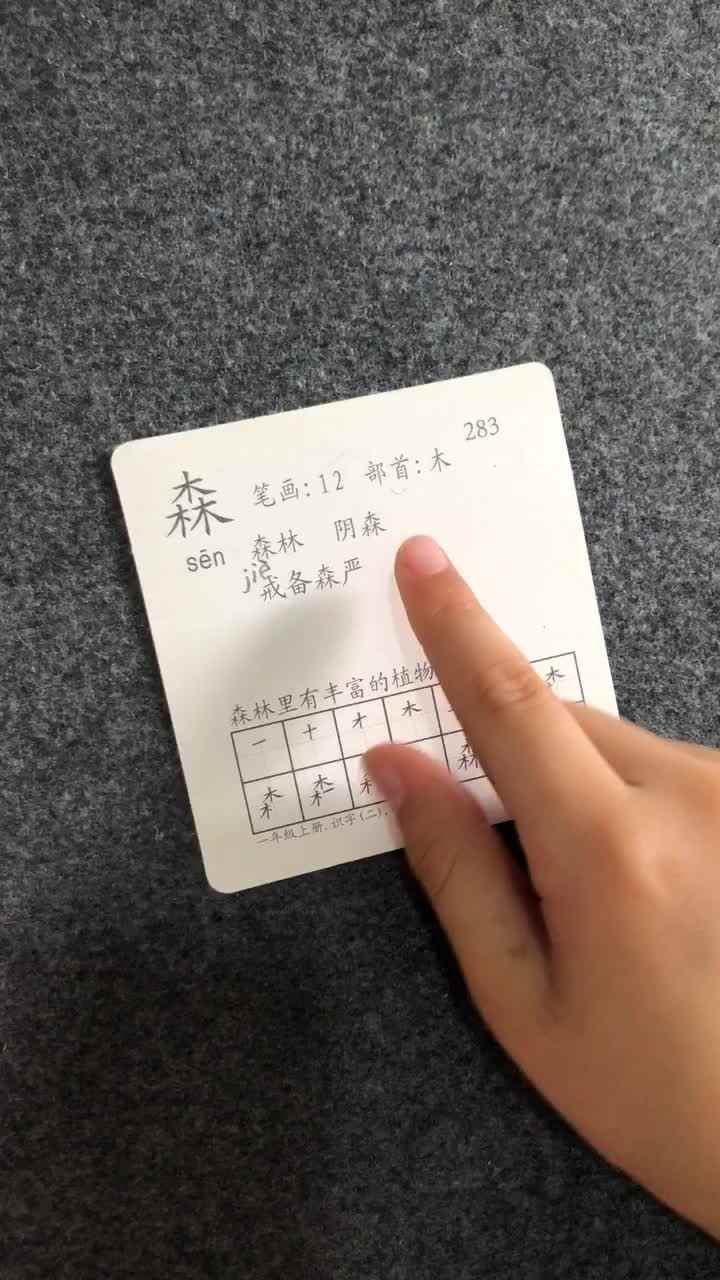 283
森 笔画:12 部首:木
sēn 森林 阴森
jiè
戒备森严
森林里有丰富的植物
一 十 才 木 木
森 森 森 森
一年级上册.识字(二).